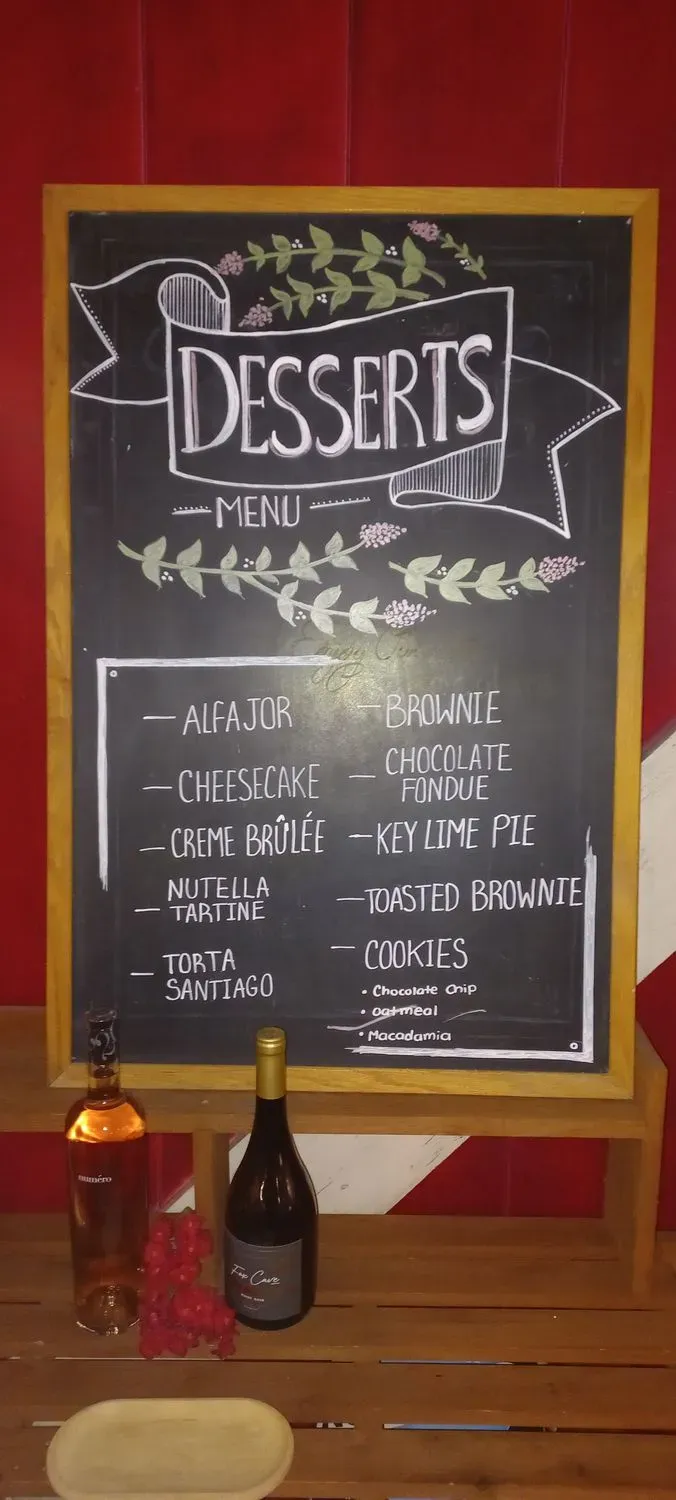 DESSERTS
MENU
Enjoy Our
— ALFAJOR
— CHEESECAKE
— CREME BRÛLÉE
— NUTELLA
TARTINE
— TORTA
SANTIAGO
— BROWNIE
— CHOCOLATE
FONDUE
— KEY LIME PIE
— TOASTED BROWNIE
— COOKIES
• Chocolate Chip
• oatmeal
• Macadamia
numéro
Fox Cave